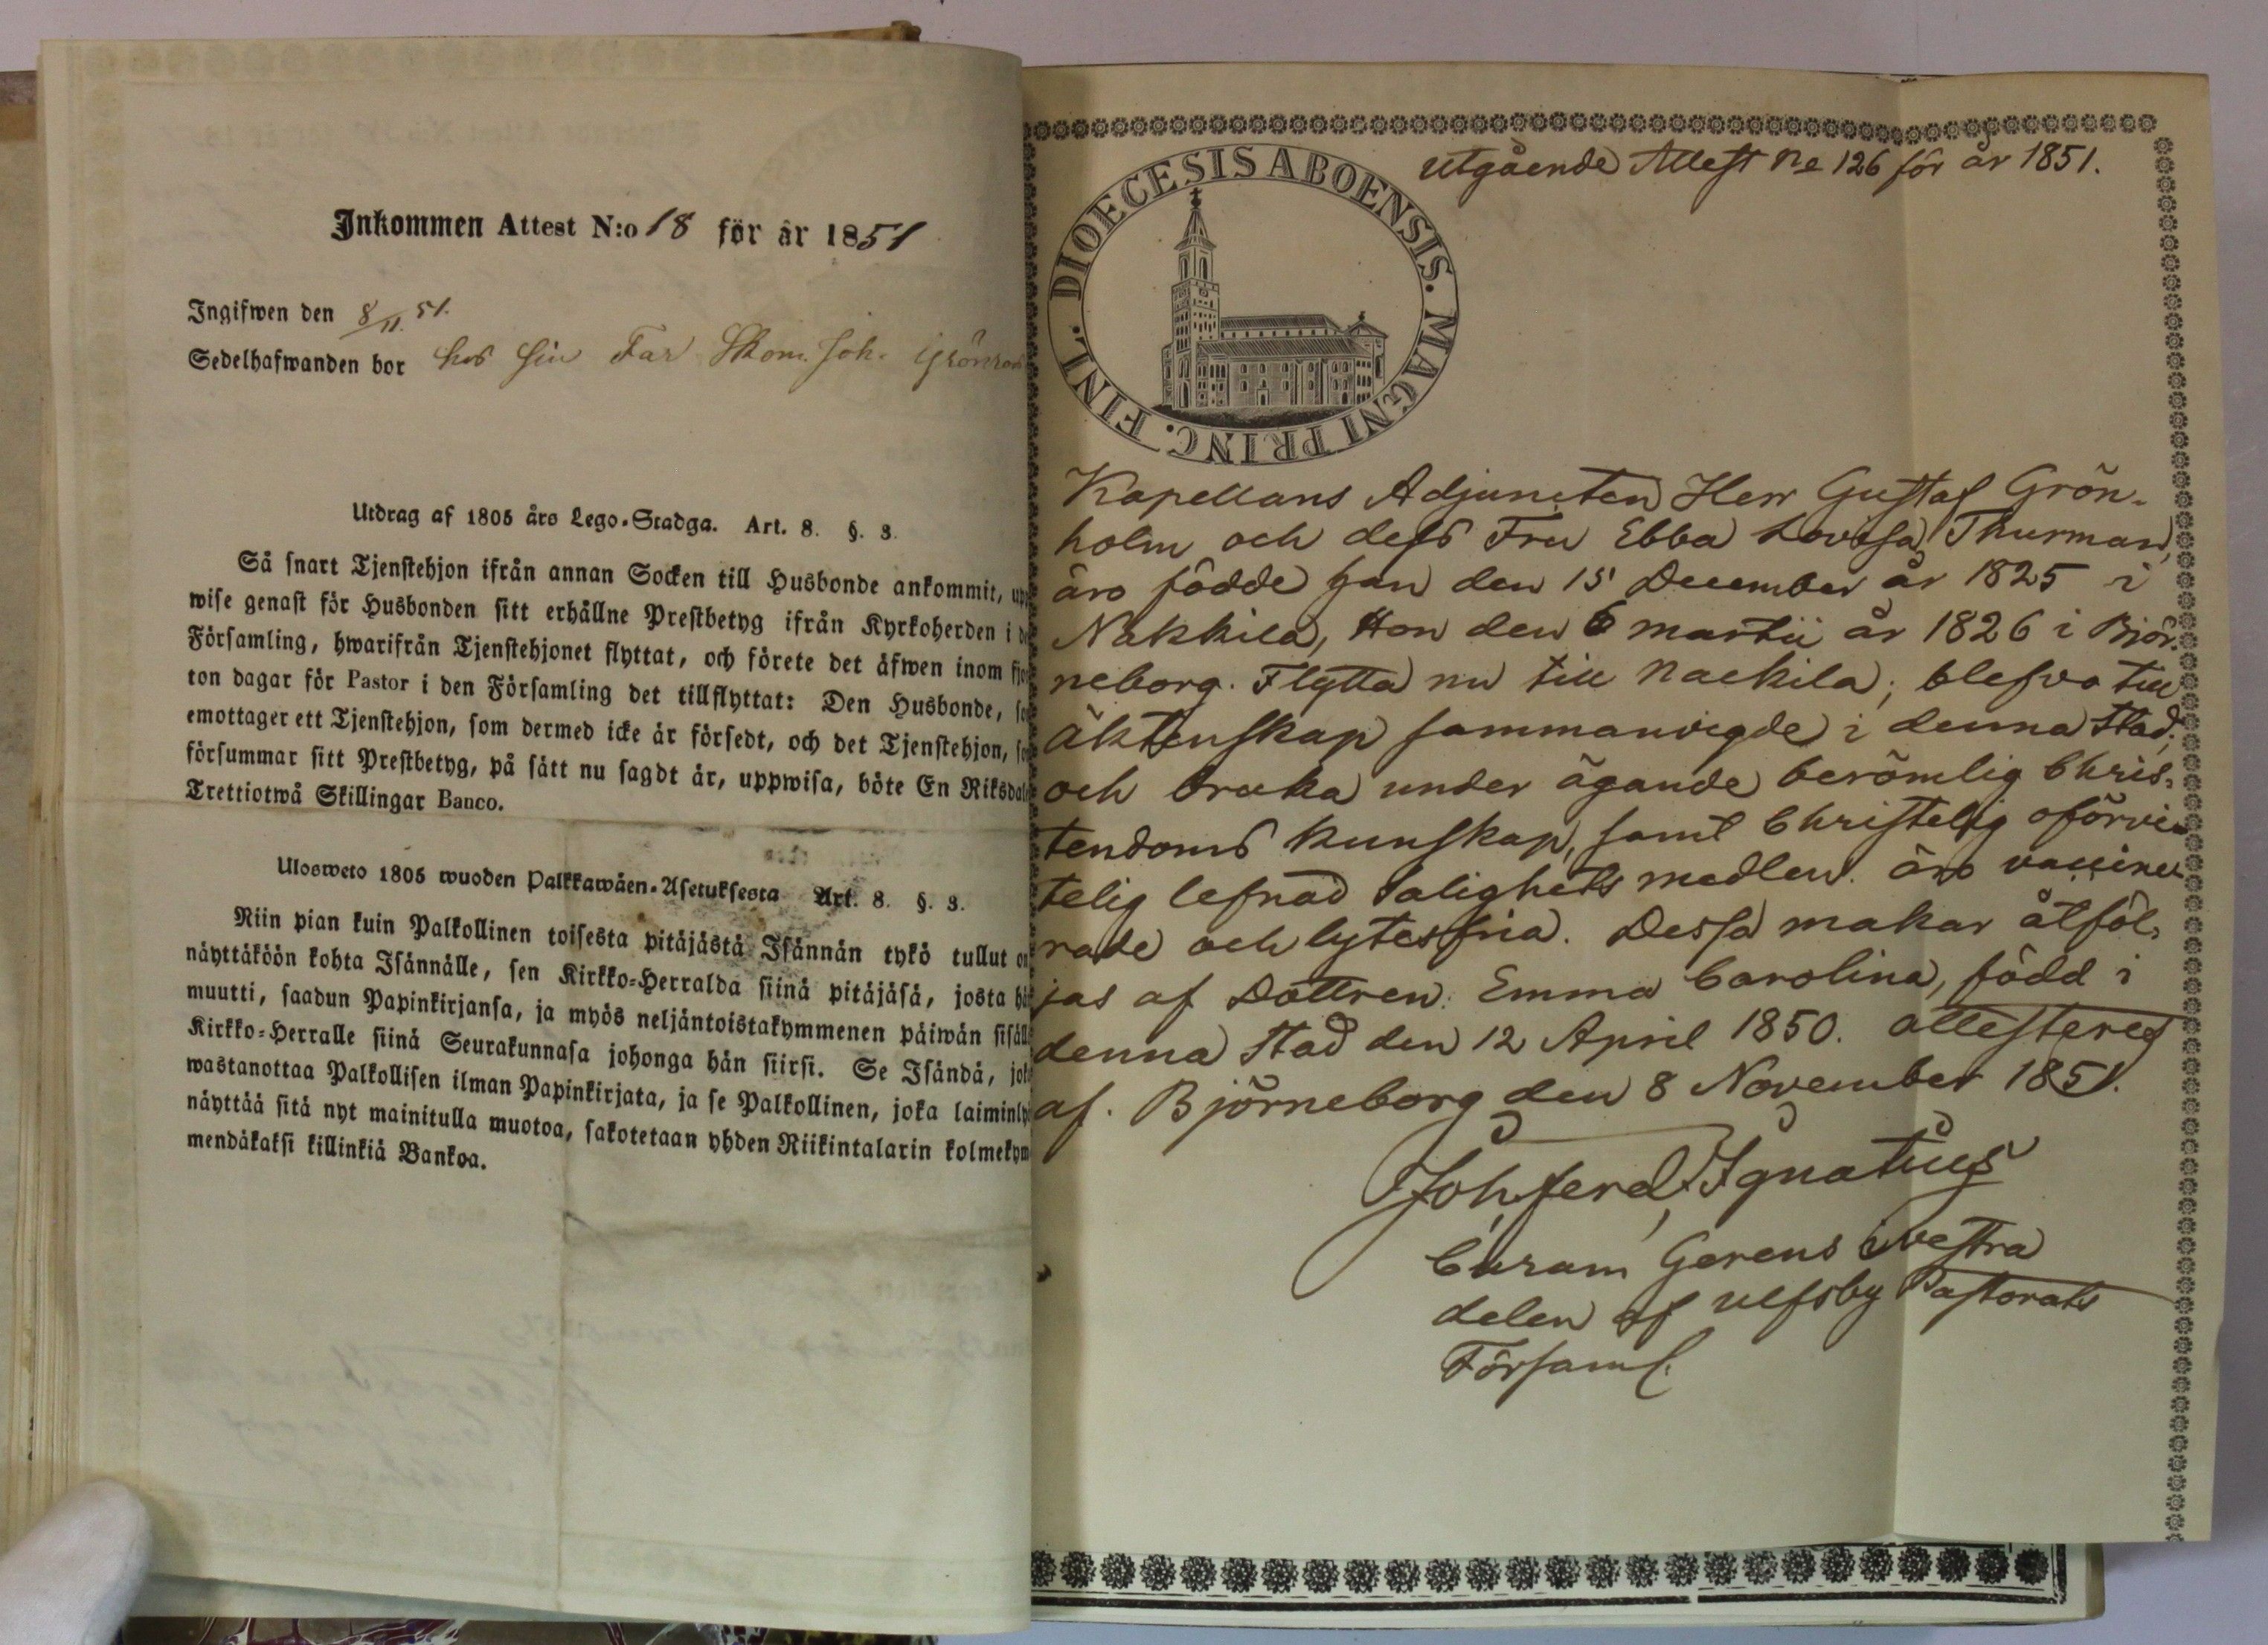 Inkommen Attest N:o 18 för år 1851
Ingifwen den 8/11. 51.
Sedelhafwanden bor hos sin Far Skom. Joh. Grönroos
Utdrag af 1805 års Lego-Stadga. Art. 8. §. 3.
Så snart Tjenstehjon ifrån annan Socken till Husbonde ankommit, upp
wise genast för Husbonden sitt erhållne Prestbetyg ifrån Kyrkoherden i de
Församling, hwarifrån Tjenstehjonet flyttat, och förete det äfwen inom fjor
ton dagar för Pastor i den Församling det tillflyttat: Den Husbonde, so
emottager ett Tjenstehjon, som dermed icke är försedt, och det Tjenstehjon, so
försummar sitt Prestbetyg, på sätt nu sagdt är, uppwisa, böte En Riksdal
Trettiotwå Skillingar Banco.
Ulosweto 1805 wuoden Palkkawäen-Asetuksesta Art. 8. §. 3.
Niin pian kuin Palkollinen toisesta pitäjästä Isännän tykö tullut on
näyttäköön kohta Isännälle, sen Kirkko-Herralda siinä pitäjäsä, josta hä
muutti, saadun Papinkirjansa, ja myös neljäntoistakymmenen päiwän sisäll
Kirkko-Herralle siinä Seurakunnasa johonga hän siirsi. Se Isändä, jok
wastanottaa Palkollisen ilman Papinkirjata, ja se Palkollinen, joka laiminly
näyttää sitä nyt mainitulla muotoa, sakotetaan yhden Riikintalarin kolmekym
mendäkaksi killinkiä Bankoa.
utgående Attest No 126 för år 1851.
DIOECESIS ABOENSIS. MAGNI PRINC. FINL.
Kapellans Adjuncten Herr Gustaf Grön-
holm och dess Fru Ebba Lovisa Thurman,
äro födde han den 15 December år 1825 i
Nakkila, Hon den 6 martii år 1826 i Björ-
neborg. Flytta nu till Nackila; blefvo till
äktenskap sammanvigde i denna stad;
och bruka under ägande berömlig Chris-
tendoms kunskap, samt Christelig oförvi-
telig lefnad salighets medlen. äro vaccine-
rade och lytesfria. Dessa makar åtföl-
jas af Dottren: Emma Carolina, född i
denna stad den 12 April 1850. attesteres
af. Björneborg den 8 November 1851.
Joh. Ferd. Ignatius
Curam Gerens i vestra
delen af Ulfsby Pastorats
Församl.